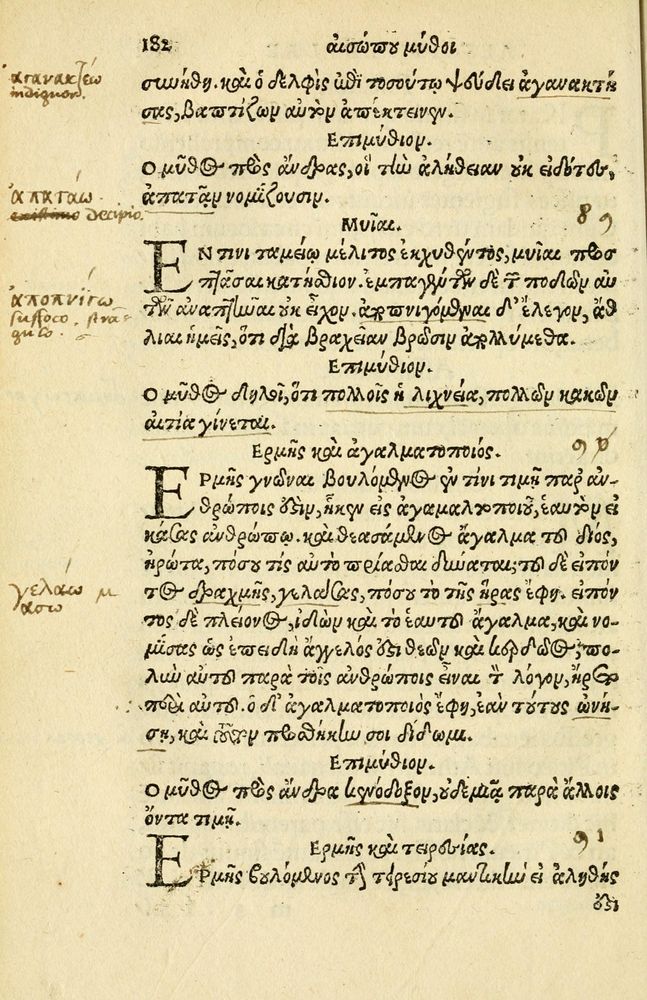 182 αἰσώπου μύθοι
συνήθη. καὶ ὁ δελφὶς ἐπὶ τοσούτῳ ψεύδει ἀγανακτή
ἀγανακτέω
indignor.
σας, βαπτίζων αὐτὸν ἀπέκτεινεν.
Επιμύθιον.
Ο μῦθος πρὸς ἄνδρας, οἳ τὴν ἀλήθειαν οὐκ εἰδότες,
ἀπατᾶν νομίζουσιν.
ἀπατάω.
decipio.
Μυῖαι. 89
ΕΝ τινι ταμείῳ μέλιτος ἐκχυθέντος, μυῖαι προσ
πτᾶσαι κατήσθιον. ἐμπαγέντων δὲ τῶν ποδῶν αὐ
τῶν ἀναπτῆναι οὐκ εἶχον. ἀποπνιγόμεναι δ' ἔλεγον, ἄθ
ἀποπνίγω
suffoco. stran=
gulo.
λιαι ἡμεῖς, ὅτι διὰ βραχεῖαν βρῶσιν ἀπολλύμεθα.
Επιμύθιον.
Ο μῦθος δηλοῖ, ὅτι πολλοῖς ἡ λιχνεία, πολλῶν κακῶν
αἰτία γίνεται.
Ερμῆς καὶ ἀγαλματοποιός. 90
ΕΡμῆς γνῶναι βουλόμενος ἐν τίνι τιμῇ παρ' ἀν-
θρώποις ἐστὶν, ἧκεν εἰς ἀγαλματοποιοῦ, ἑαυτὸν εἰ
κάσας ἀνθρώπῳ. καὶ θεασάμενος ἄγαλμα τοῦ διός,
ἠρώτα, πόσου τίς αὐτὸ πρίασθαι δύναται; τοῦ δὲ εἰπόν
τος δραχμῆς, γελάσας, πόσου τὸ τῆς ἥρας ἔφη. εἰπόν
γελάω μ
ασω
τος δὲ πλείονος, ἰδὼν καὶ τὸ ἑαυτοῦ ἄγαλμα, καὶ νο-
μίσας ὡς ἐπειδὴ ἄγγελός ἐστι θεῶν καὶ κερδῶος, πο-
λὺν αὐτοῦ παρὰ τοῖς ἀνθρώποις εἶναι τὸν λόγον, ἤρετο
περὶ αὐτοῦ. ὁ δ' ἀγαλματοποιὸς ἔφη, ἐὰν τούτους ὠνή-
σῃ, καὶ τοῦτον προσθήκην σοι δίδωμι.
Επιμύθιον.
Ο μῦθος πρὸς ἄνδρα κενόδοξον, οὐδεμιᾷ παρὰ ἄλλοις
ὄντα τιμῇ.
Ερμῆς καὶ τειρεσίας. 91
ΕΡμῆς βουλόμενος τὴν τειρεσίου μαντικὴν εἰ ἀληθής
ἐστι